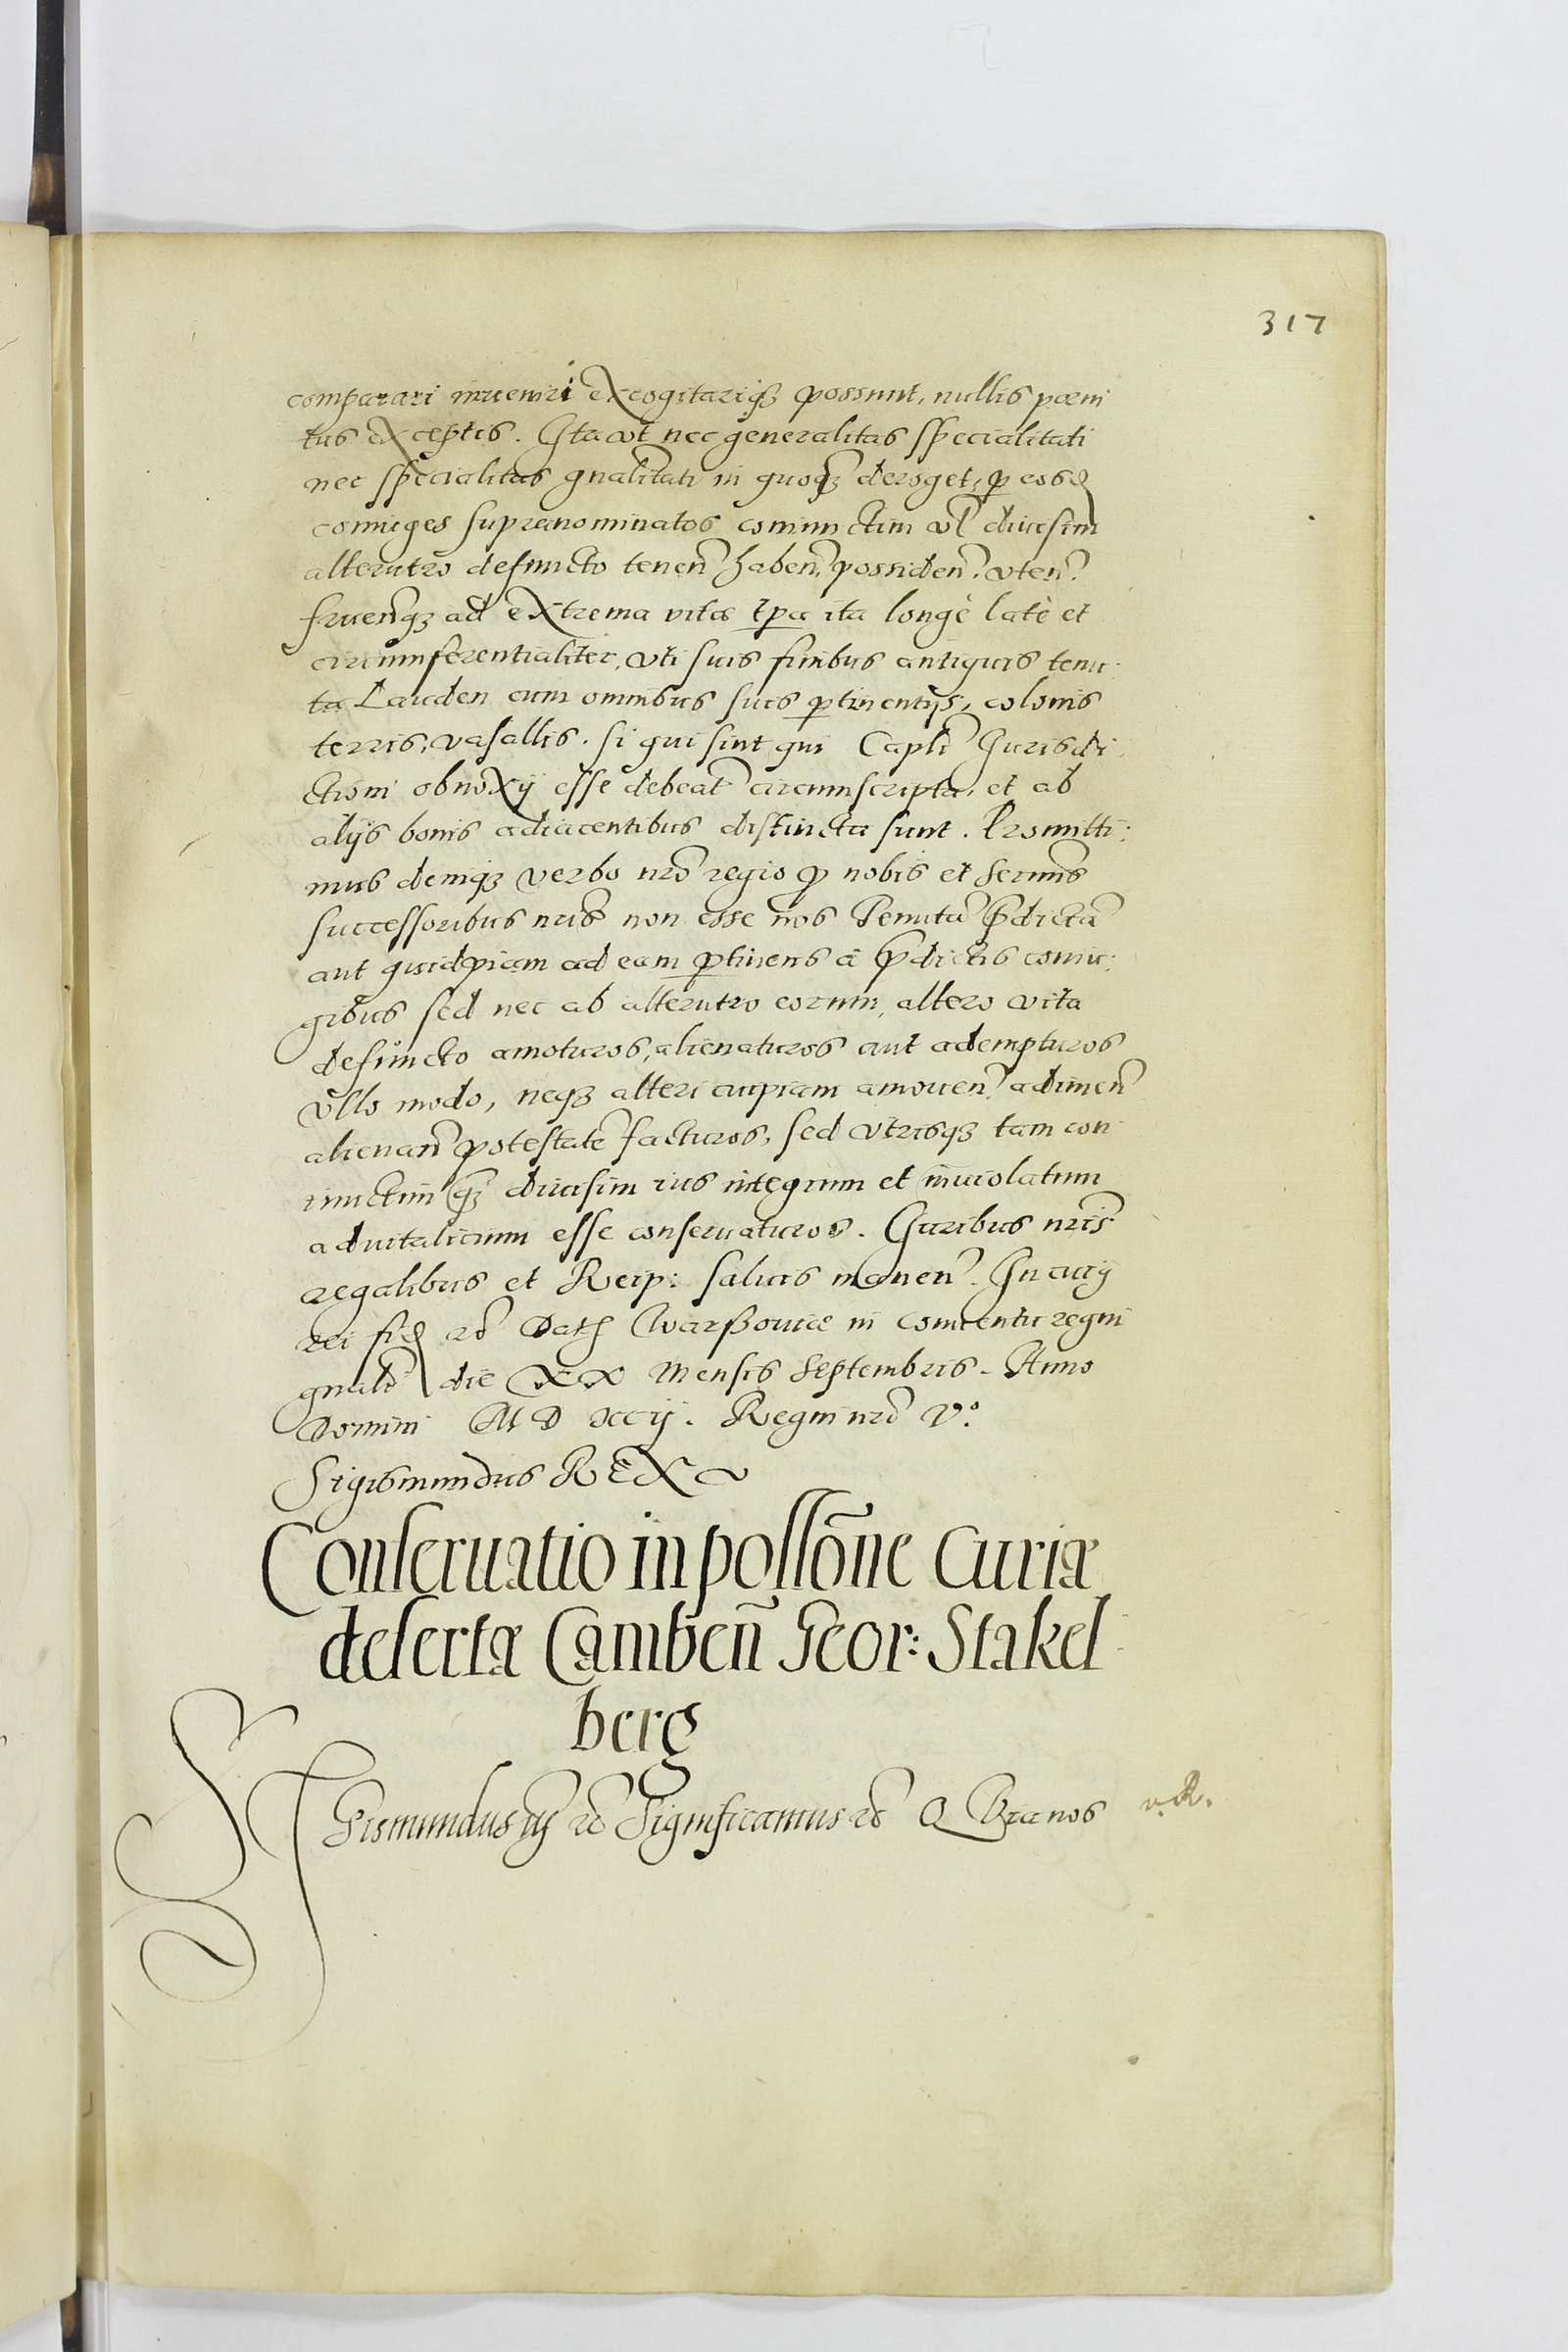 317
comparari inveniri excogitariq₃ possunt, nullis pœni
tus exceptis. Ita ut nec generalitas specialitati
nec specialitas gnalitati in quoq₃ deroget, p eosd
coniuges supranominatos coniunctim vl diuisim
alterutro defuncto tenen̄ haben̄, possiden̄. vten̄.
fruenq₃ ad extrema vitæ tpa ita longè latè et
circumferentialiter, vti suis finibus antiquis tenu:
ta Lauden cum omnibus suis ptinentijs, colonis
terris, vasallis. si qui sint qui Capli Iurisdi:
ctioni obnoxij esse debeat circumscripta, et ab
alijs bonis adiacentibus distincta sunt. Promitti:
mus deniq₃ verbo nrō regio p nobis et sermis
successoribus nris non esse nos Tenutā pdictā
aut quidpiam ad eam ptinens à pdictis coniu:
gibus sed nec ab alterutro eorum, altero vita
defuncto amoturos, alienaturos aut adempturos
vllo modo, neq₃ alteri cuipiam amouen̄. adimen̄
alienan̄ potestatē facturos, sed vtrisq₃ tam con
iunctim q̃ diuisim ius integrum et inuiolatum
aduitalicium esse conseruaturos. Iuribus nris
regalibus et Reip: saluis manen̄. In cuius
rei fid rō Datt Warßouiæ in conuentu regni
gnali die XX Mensis Septembris. Anno
Domini M D XCij. Regni nrī V.º
Sigismundus REX
Conseruatio in possōne Curiæ
desertæ Camben̄ Geor: Stakel
berg
Sigismundus iij rō Significamus rō Q Via nos v.R.